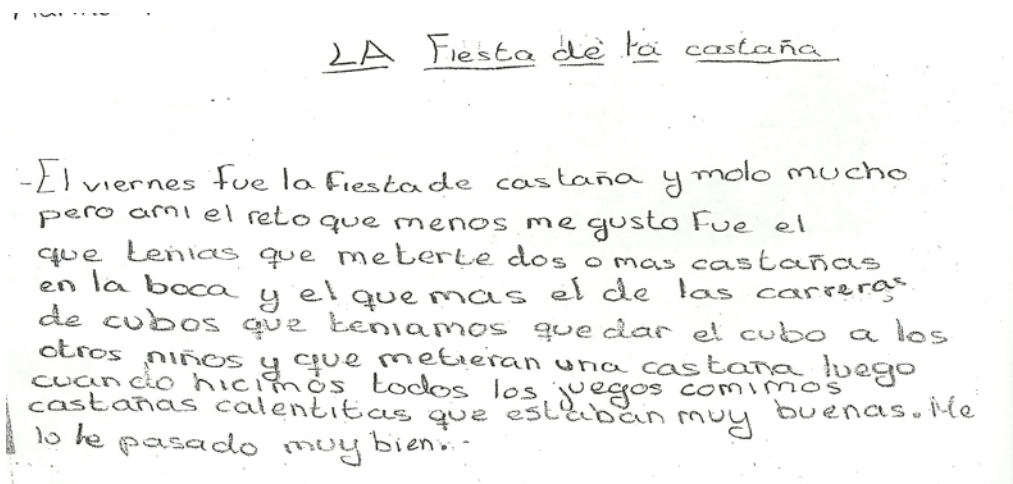 LA Fiesta de la castaña
-El viernes fue la fiesta de castaña y molo mucho
pero ami el reto que menos me gusto Fue el
que tenias que meterte dos o mas castañas
en la boca y el que mas el de las carreras
de cubos que teniamos que dar el cubo a los
otros niños y que metieran una castaña luego
cuando hicimos todos los juegos comimos
castañas calentitas que estaban muy buenas. Me
lo he pasado muy bien.-